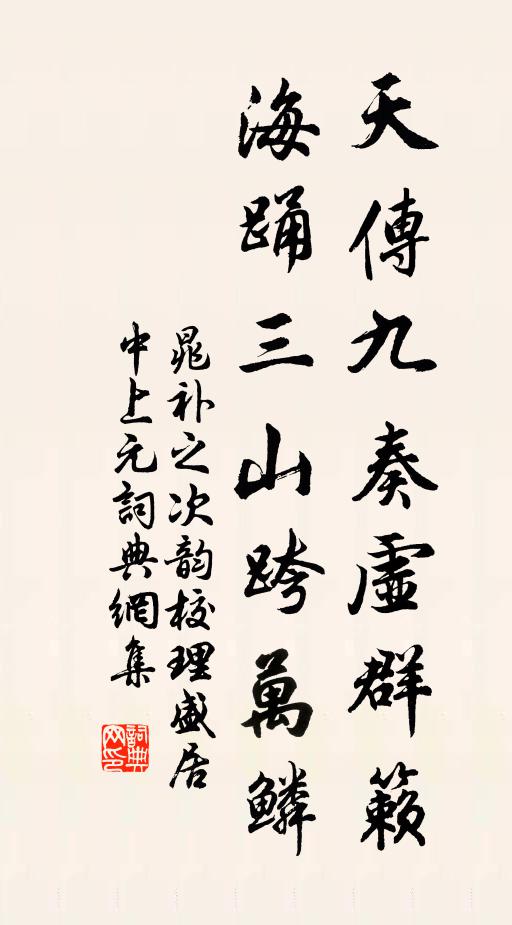 天傳九奏虛群籟
海踊三山跨萬鱗
晁補之次韵校理盛居
中上元詞典網集
詞典网印